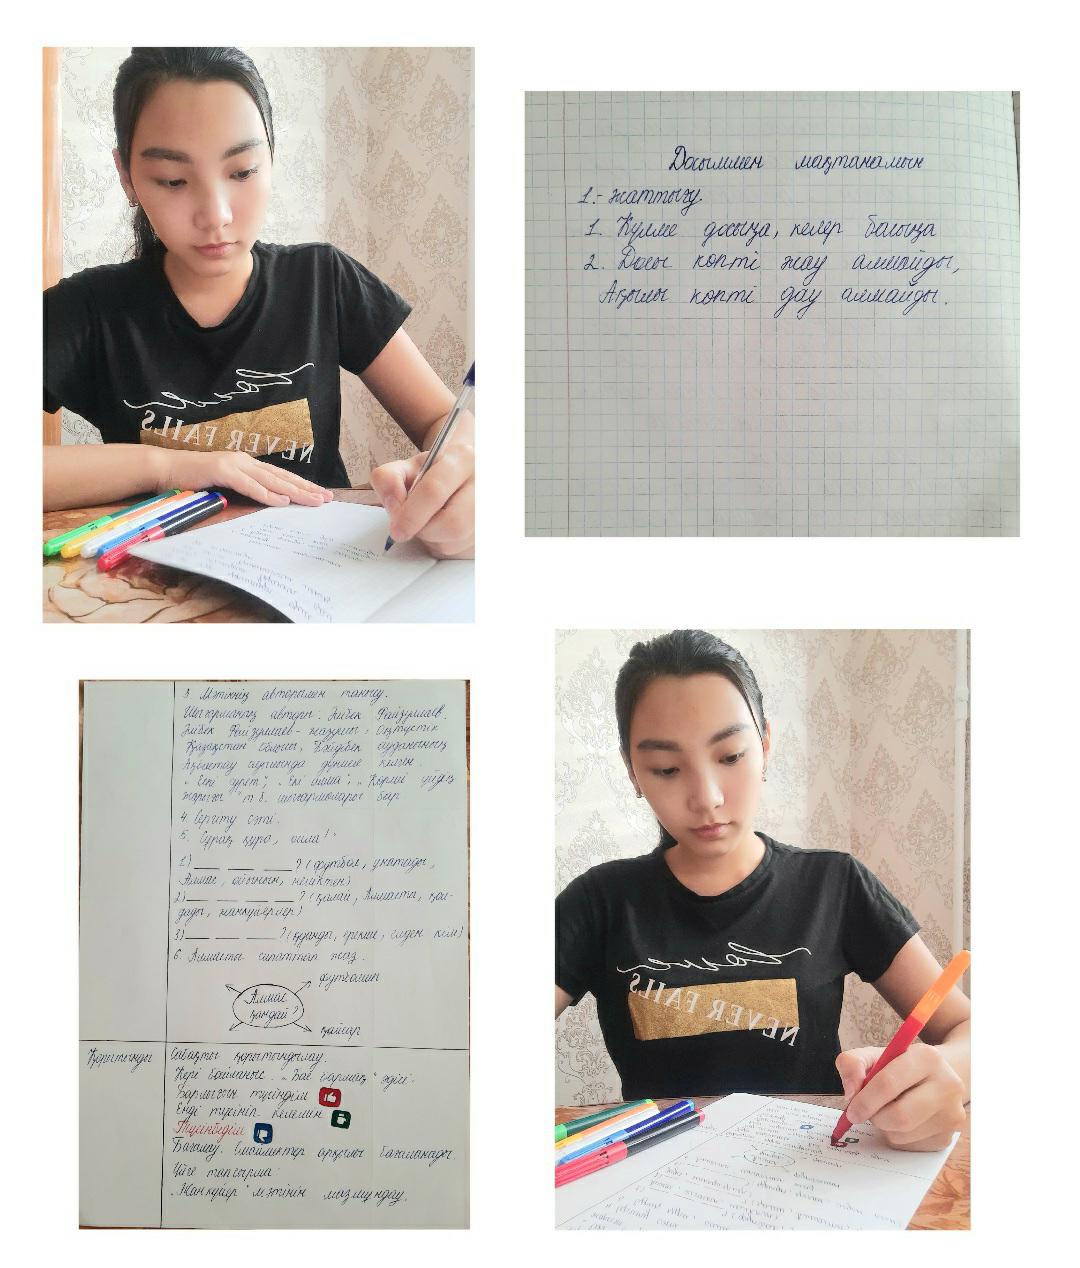 NEVER FAILS
Досыммен мақтанамын
1.- жаттығу.
1. Күлме досыңа, келер басыңа
2. Досы көпті жау алмайды,
Ақылы көпті дау алмайды.
3. Мәтіннің авторымен танысу.
Шығарманың авторы: Зәйбек Файзуллаев.
Файзуллаев - жазушы, Оңтүстік
Қазақстан облысы, Бәйдібек ауданының
Ақбастау ауылында дүниеге келген.
"Екі сурет", "Екі алма",
т.б. шығармалары бар
4. Сергіту сәті.
5. Сұрақ құра, ойла!
1) ___ ___ ___ ? (футбол, ұнатады,
Алмас, ойынын, неліктен)
2) ___ ___ ___ ? (қалай, Алмасты, қол-
дады, жанкүйерлер)
3) ___ ___ ___ ? (қуанды, ерекше, елден кім)
6. Алмасты сипаттап жаз.
футболшы
Алмас
қандай?
қайсар
Қорытынды
Сабақты қорытындылау.
Кері байланыс. "Бас бармақ" әдісі.
Барлығын түсіндім
Енді түсініп келемін
Түсінбедім
Бағалау. Смайликтер арқылы бағаланады.
Үйге тапсырма:
"Жанкүйер" мәтінін мазмұндау.
NEVER FAILS